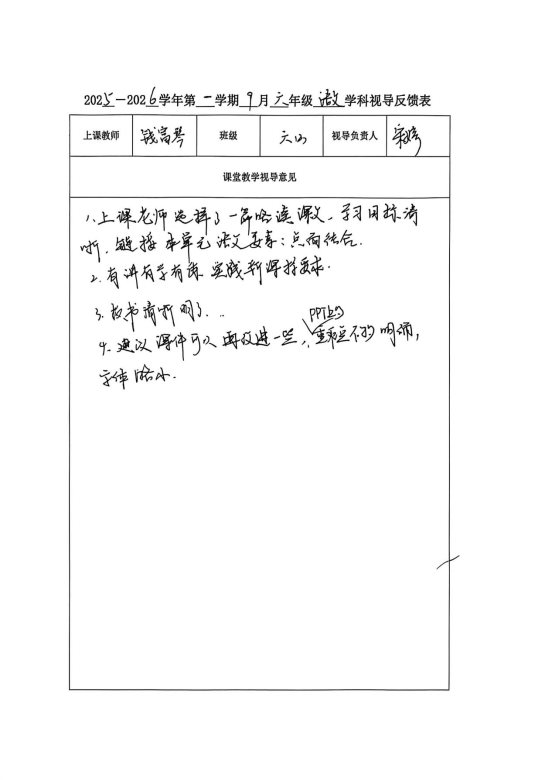 2025—2026学年第一学期9月六年级语文学科视导反馈表
上课教师 钱富琴 班级 视导负责人
课堂教学视导意见
1、上课老师选择了一篇略读课文，学习目标清
晰，链接本单元语文要素：点面结合.
2.有讲有学有练 实践新课标要求.
3.板书清晰明了...
PPT上的
4.建议课件可以再改进一些，重难点不够明确，
字体略小.